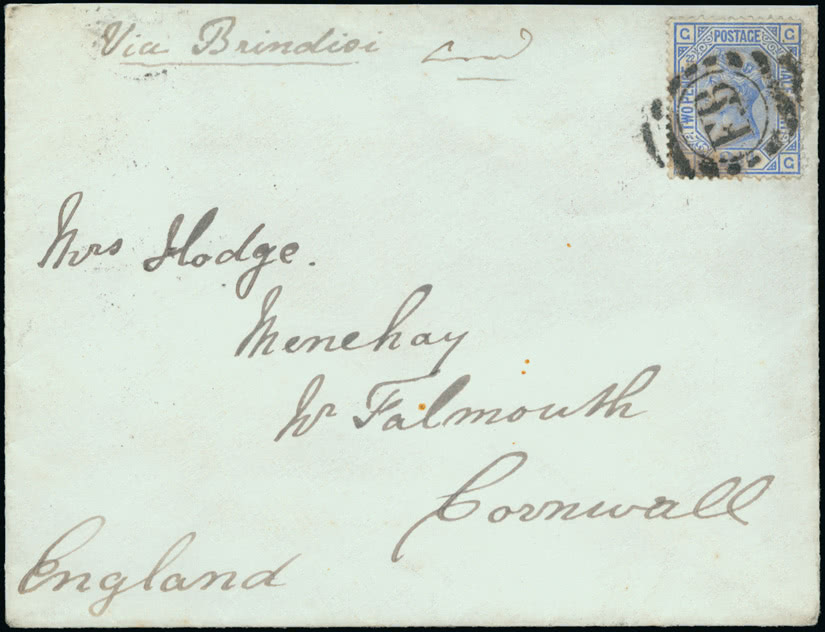 Via Brindisi
POSTAGE
G G
TWO PENCE
G
Mrs Hodge.
Menehay
Nr Falmouth
Cornwall
England